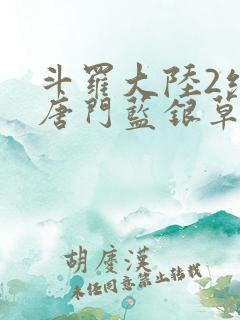 斗羅大陸2
唐門藍銀草
胡慶漢
未经同意禁止转载